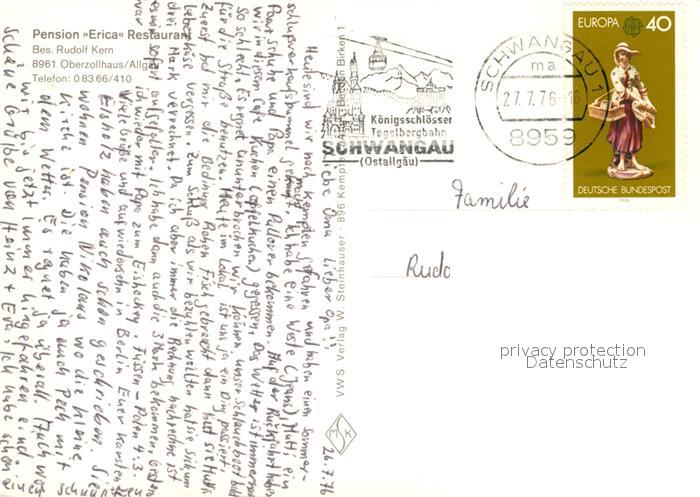 Pension »Erica« Restaurant
Bes. Rudolf Kern
8961 Oberzollhaus/Allg
Telefon: 0 83 66/410
Königsschlösser
Tegelbergbahn
SCHWANGAU
(Ostallgäu)
SCHWANGAU 1
ma
27.7.76-16
8959
EUROPA 40
DEUTSCHE BUNDESPOST
VWS Verlag W. Steinhäuser · 896 Kempten
Birken 1
26.7.76
Liebe Oma, Lieber Opa!
Heute sind wir nach Kempten gefahren und haben einen Sommer-
schlußverkaufsbummel gemacht. Ich habe eine Weste (Jeans), Mutti ein
Paar Schuhe und Papa einen Pullover bekommen. Auf der Rückfahrt haben
wir in diesem Cafe Kuchen (Apfelkuchen) gegessen. Das Wetter ist immer
so schlecht. Es regnet ununterbrochen wir können unser Schlauchboot bald
für die Straße benutzen. Heute im Lokal ist uns ja ein Ding passiert.
Zuerst hat mir die Bedinung Rohen Fisch gebracht dann hat sie Muttis
Leberkäse vergessen. Zum Schluß als wir bezahlen wollten hat sie sich um
drei Mark verrechnet. Da ich aber immer die Rechnung nachrechne ist
es mir sofort aufgefallen. Ich habe dann auch die 3 Mark bekommen. Gestern
war ich wieder mit Papa zum Eishockey. Füssen - Polen 4:3.
Viele Grüße und aufwiedersehn in Berlin Euer Karsten
Eisholz haben auch schon geschrieben. Sie
wohnen Pension Nikolaus wo die kleine
Kirche ist. Die haben ja auch Pech mit
dem Wetter. Es regnet ja überall. Auch wo
wir bis jetzt immer hingefahren sind
Schöne Grüße von Heinz + Eva. Ich habe schon einen
Familie
Rudo
privacy protection
Datenschutz